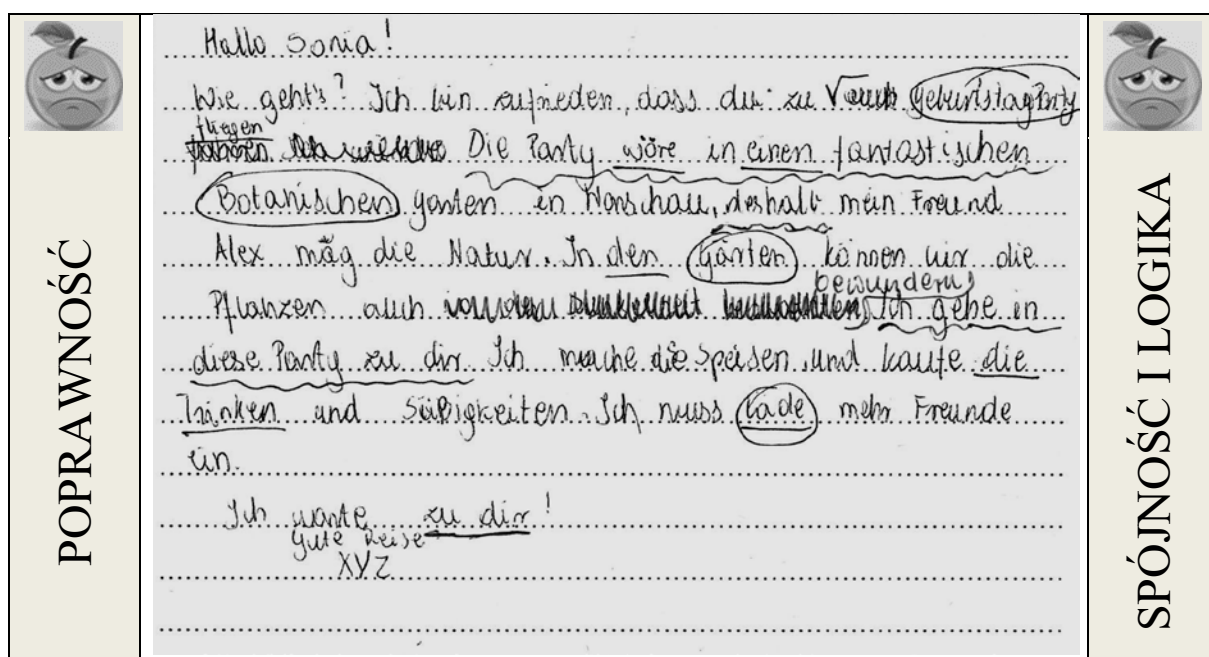 POPRAWNOŚĆ
Hallo Sonia!
Wie geht's? Ich bin zufrieden, dass du zu √ GeburtstagParty
fliegen
Die Party wäre in einen fantastischen
Botanischen garten in Warschau, deshalb mein Freund
Alex mag die Natur. In den Gärten können wir die
bewundern
Pflanzen auch Ich gehe in
diese Party zu dir Ich mache die Speisen und kaufe die
Trinken und Süßigkeiten. Ich muss lade mehr Freunde
ein.
Ich warte zu dir!
Gute Reise
XYZ
SPÓJNOŚĆ I LOGIKA